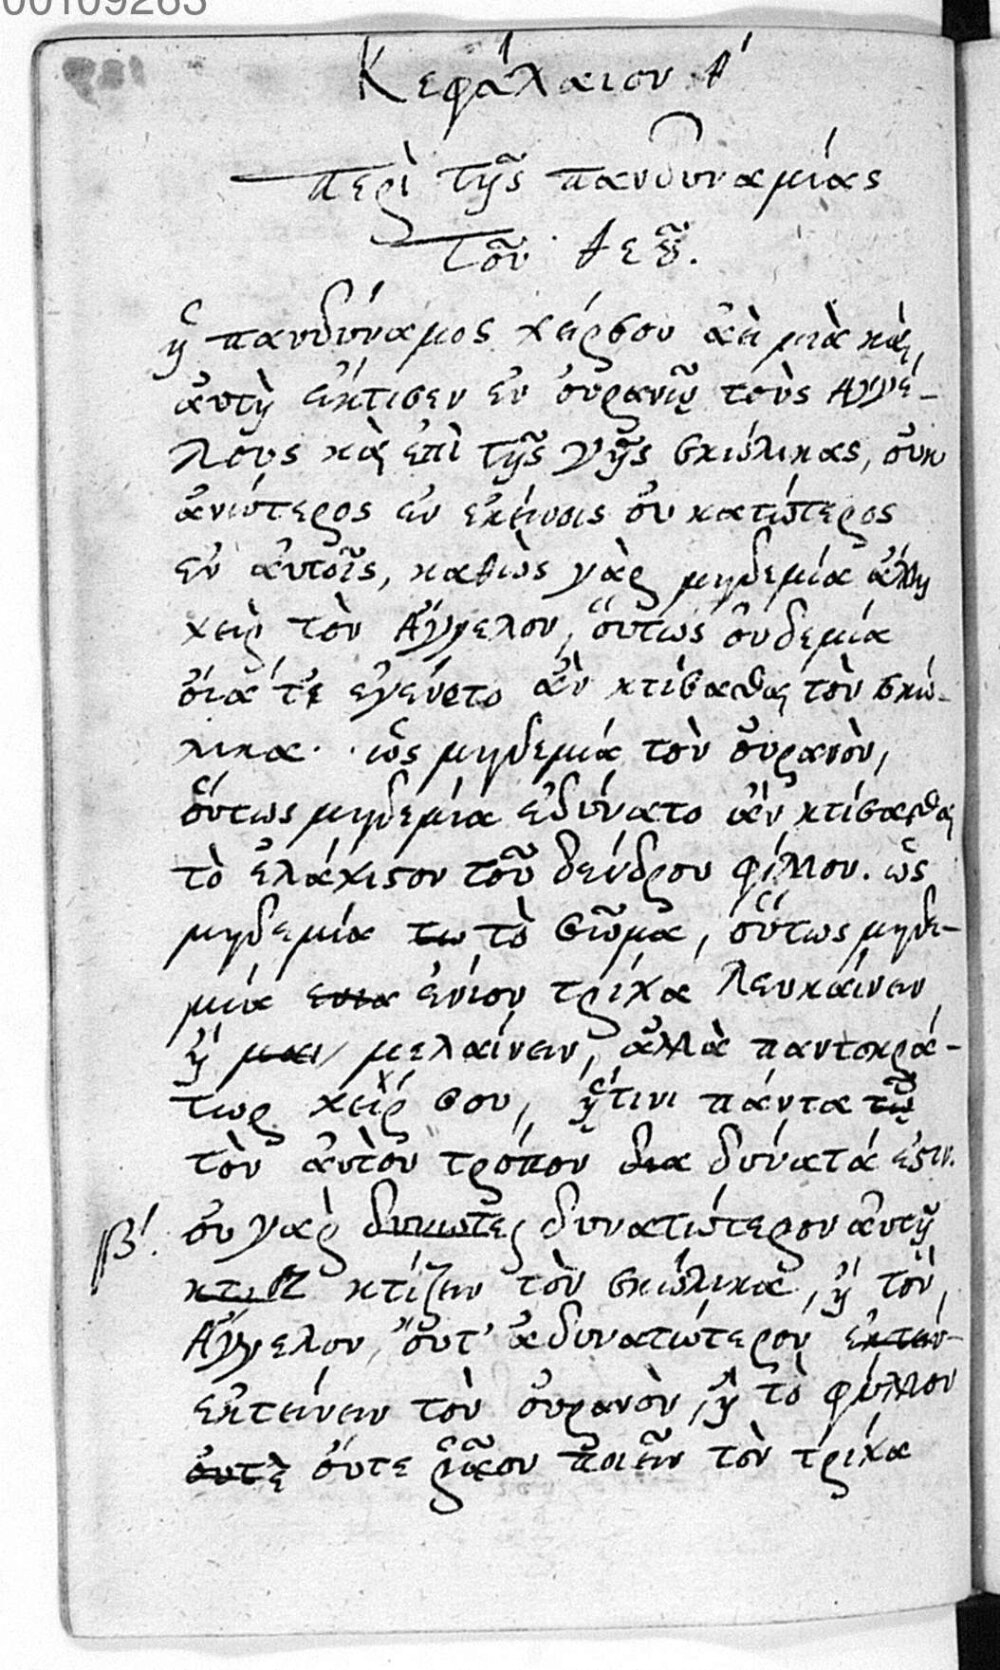 00109263
Κεφάλαιον θ'
περὶ τῆς πανδυναμίας
τοῦ θεȣ͂.
ἡ πανδύναμος χείρσου ἀεὶ μιὰ καὶ
ἀυτὴ ἔκτισεν ἐν ὀυρανῷ τοὺς Ἀγγέ-
λους καὶ ἐπὶ τῆς γῆς σκώλικας, ὀυκ
ἀνώτερος ἐν ἐκείνοις ὀυ κατώτερος
ἐν ἀυτοῖς, καθὼς γὰρ μηδεμία ἄλλη
χεὶρ τὸν Ἄγγελον, ὅυτως ὀυδεμία
ὅια τε ἐγένετο ἂν κτίσασθαι τὸν σκώ-
λικα. ὡς μηδεμιά τὸν ὀυρανὸν,
ὅυτως μηδεμία ἐδύνατο ἂν κτίσασθαι
τὸ ἐλάχιστον τοῦ δένδρου φίλλον. ὡς
μηδεμία τω τὸ σῶμα, ὅυτως μηδε-
μιά ενια ἐνίου τρίχα λευκαίνειν
ἢ μαι μελαίνειν, ἀλλὰ παντοκρά-
τωρ χείρ σου, ᾗτινι πάντα τῷ
τὸν ἀυτὸν τρόπον δια δύνατά ἐστιν.
β'. ὀυ γὰρ δυνωτες δυνατώτερον ἀυτῇ
κτιζ κτίζειν τὸν σκώλικα, ἢ τὸν
Ἄγγελον, ὄυτ' ἀδυνατώτερον ἐκτειν-
ἐκτείνειν τὸν ὀυρανὸν, ἢ τὸ φύλλον
ὀυτὲ ὄυτε ῥᾷον ποιεῖν τὸν τρίχα